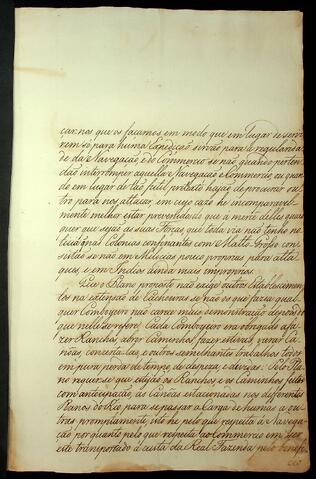 car nos que os façamos em modo que em lugar de servi-
rem só para huma Expedição sirvão para a regularida-
de da Navegação, e do Commercio se não quando perten-
das interromper aquella Navegação e Commercio, ou quan-
do em lugar de tão futil pretexto hajas de procurar ou
tro para nos attacar, em cujo cazo he incomparavel-
mente melhor estar prevenido, visto que a mente delles quaes
quer que sejão as suas Forças que toda via não tenho no-
ticia, nas Colonias confinantes com o Matto Grosso con-
sistão se não em Milicias pouco proprias para atta-
ques, e em Indios ainda mais improprios.
Que o Plano proposto não exige outros Estabelecimen-
tos na extensão de Cachoeiras se não os que fazia qual
quer Comboyeiro não carece mais demonstração depois do
que nelle se refere. Cada Comboyeiro era obrigado a fa-
zer Ranchos, abrir Caminhos, fazer estivas, varar Ca-
nôas, concertalas, e outros semelhantes trabalhos todos
em pura perda de tempo, de despeza, e de vidas. Pelo Pla-
no requer-se que estejão os Ranchos, e os Caminhos feitos
com antecipação, as Canôas estacionadas nos differentes
Planos do Rio, para se passar a Carga de humas a ou-
tras promptamente, isto he pelo que respeita á Navega-
ção, por quanto pelo que respeita ao Commercio em ser
este transportado á custa da Real Fazenda pelo benefi-